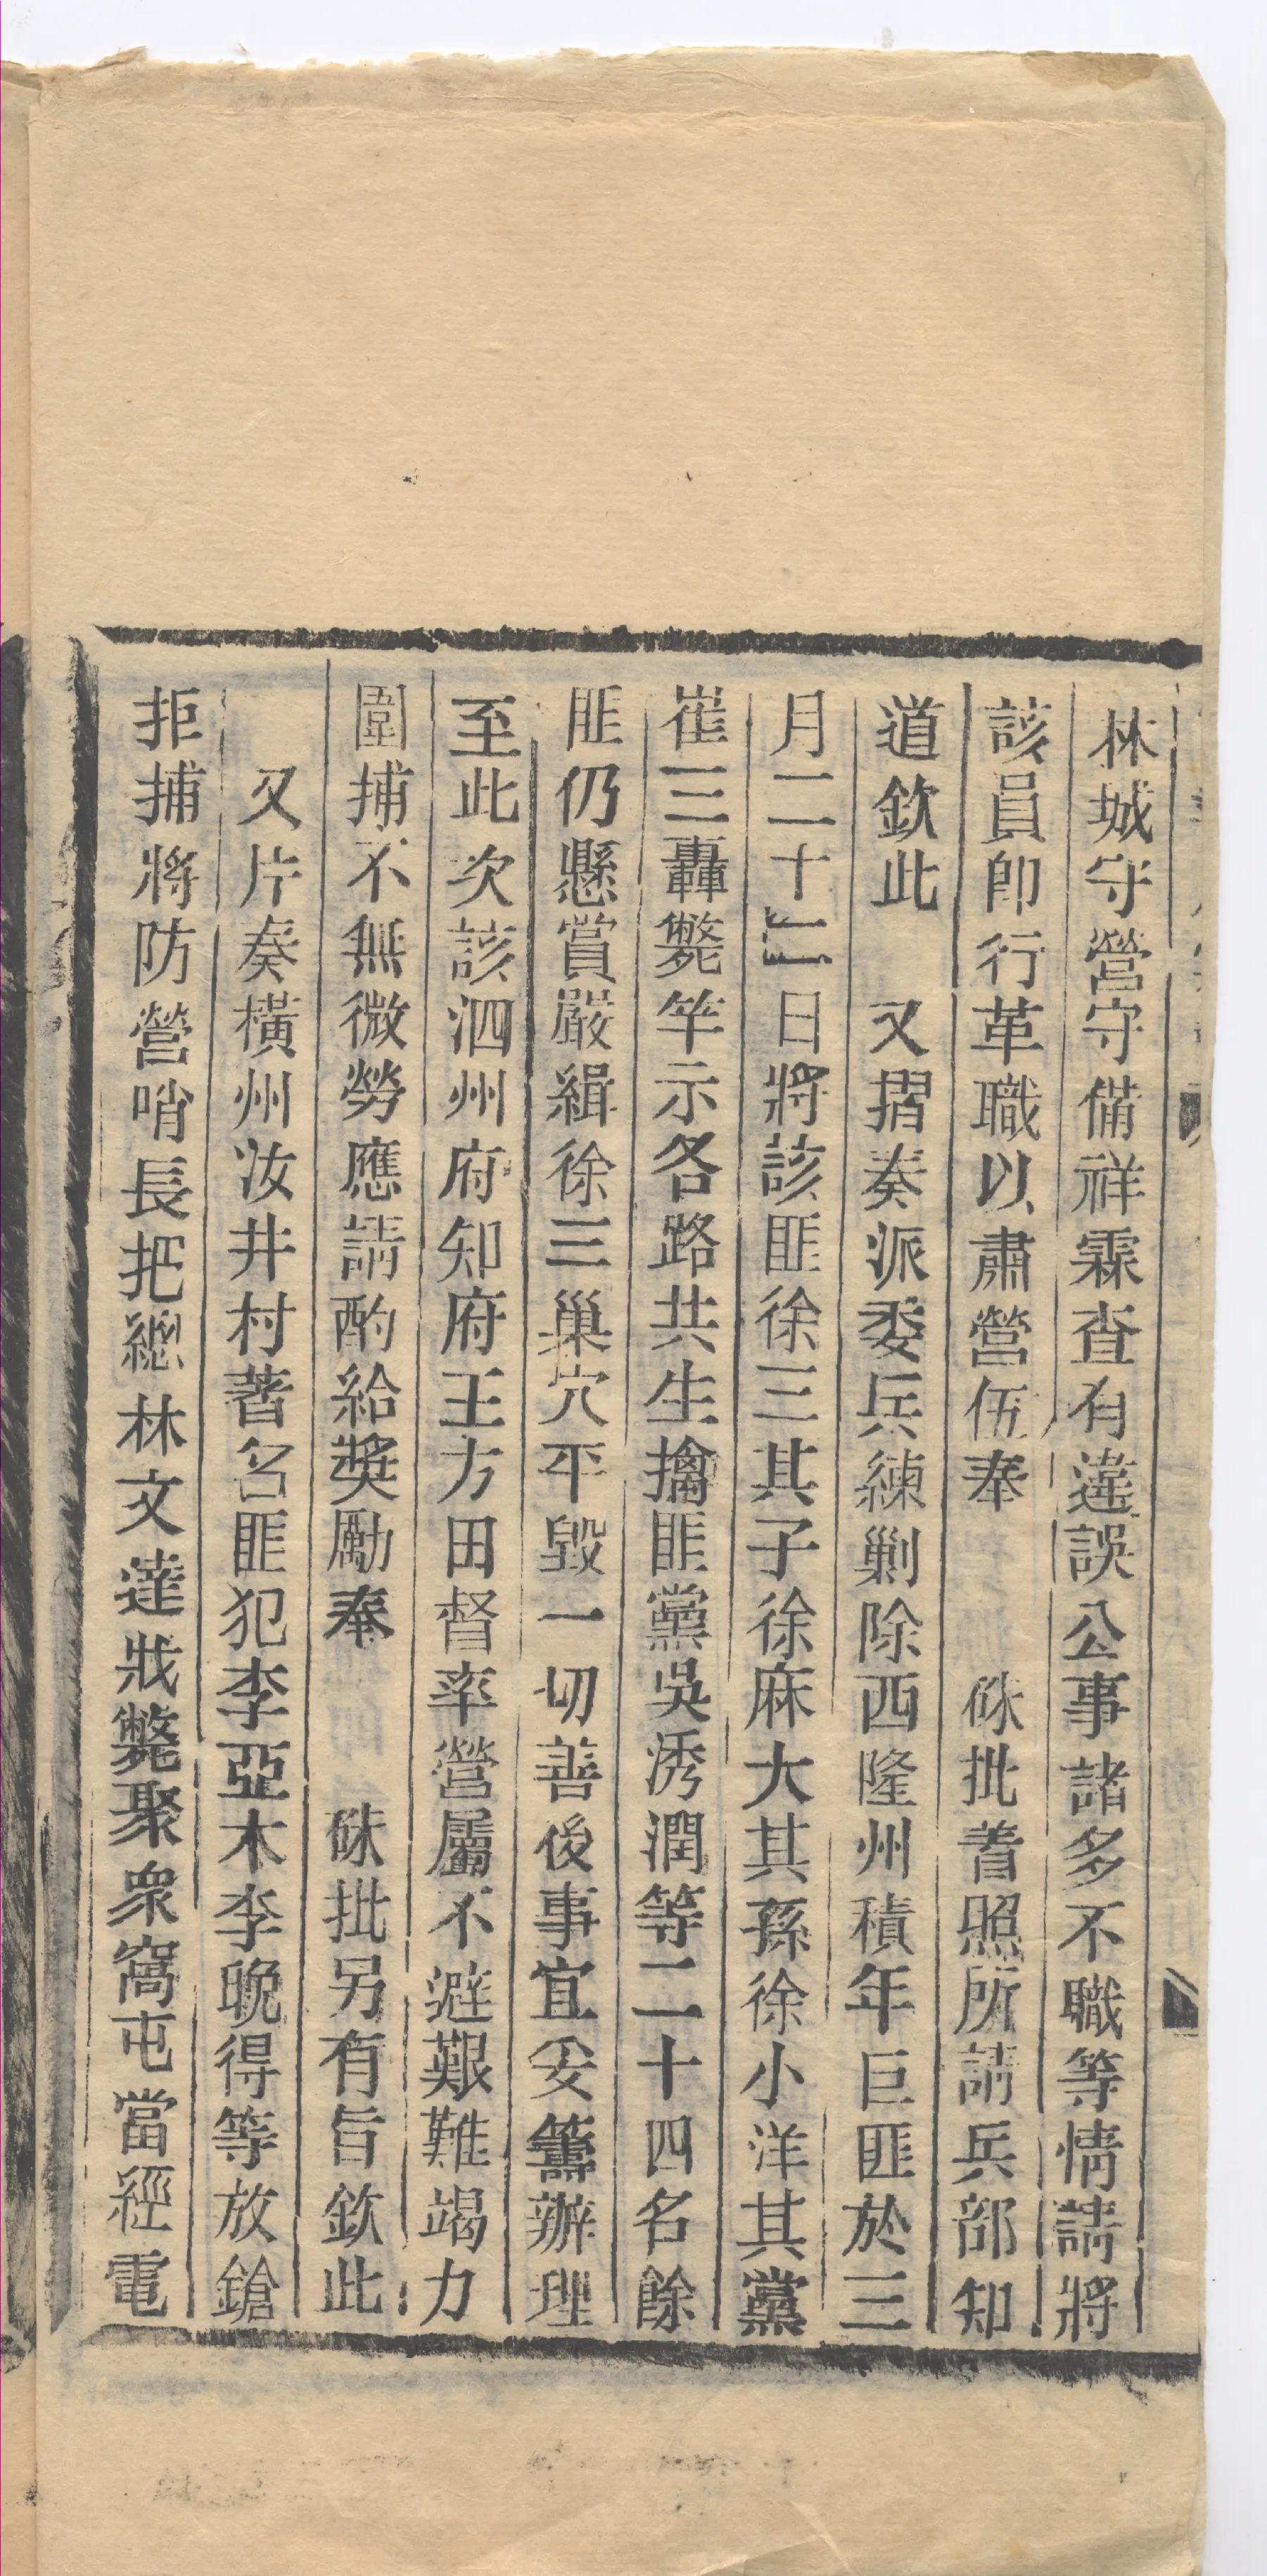 林城守營守備祥霖查有違誤公事諸多不職等情請將
該員卽行革職以肅營伍奉　硃批着照所請兵部知
道欽此　又摺奏派委兵練剿除西隆州積年巨匪於三
月二十二日將該匪徐三其子徐麻大其孫徐小洋其黨
崔三轟斃竿示各路共生擒匪黨吳秀潤等二十四名餘
匪仍懸賞嚴緝徐三巢穴平毀一切善後事宜妥籌辦理
至此次該泗州府知府王方田督率營屬不避艱難竭力
圍捕不無微勞應請酌給獎勵奉　硃批另有旨欽此
又片奏橫州汝井村著名匪犯李亞木李晚得等放鎗
拒捕將防營哨長把總林文達戕斃聚衆窩屯當經電